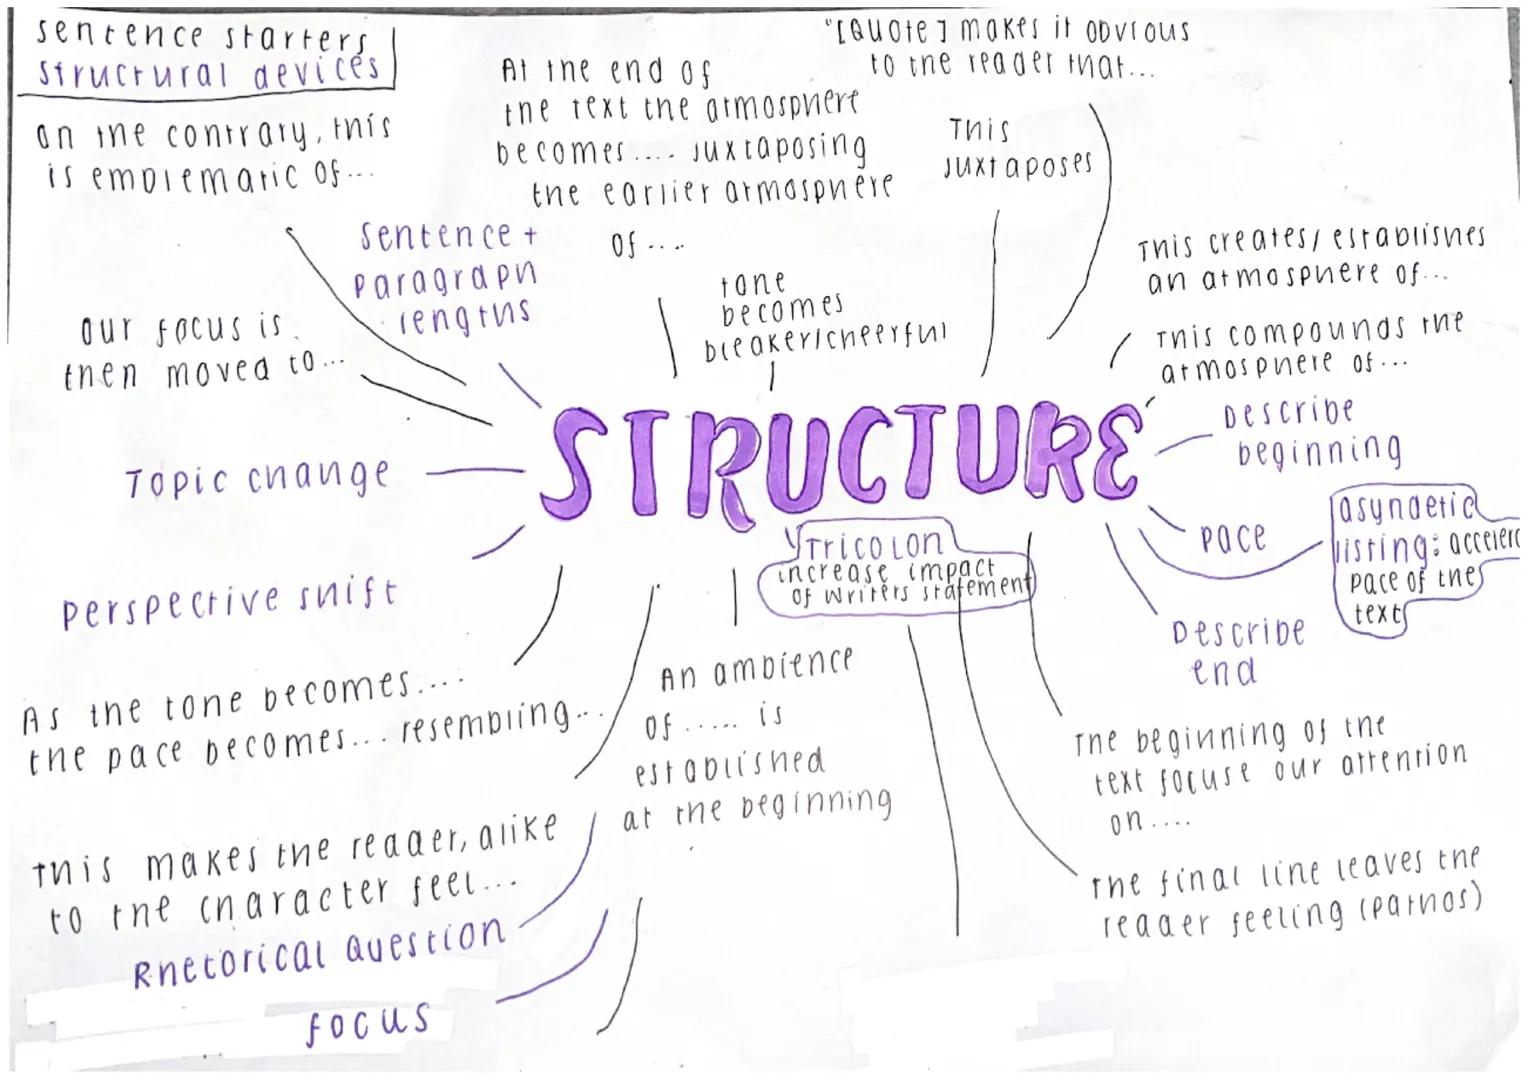 sentence starters
structural devices
on the contrary, this
is emblematic of...
At the end of
the text the atmosphere
becomes.... juxtaposing
the earlier atmosphere
of ....
"[Quote] makes it obvious
to the reader that...
This
juxtaposes
sentence +
paragraph
lengths
tone
becomes
bleaker/cheerful
This creates/establishes
an atmosphere of...
This compounds the
atmosphere of...
our focus is
then moved to...
STRUCTURE
Describe
beginning
Topic change
Pace
asyndetic
listing: accelera
pace of the
text
Tricolon
increase impact
of writers statement
perspective shift
Describe
end
As the tone becomes....
the pace becomes... resembling...
An ambience
of ..... is
established
at the beginning
The beginning of the
text focuse our attention
on....
This makes the reader, alike
to the character feel...
The final line leaves the
reader feeling (pathos)
Rhetorical Question
focus